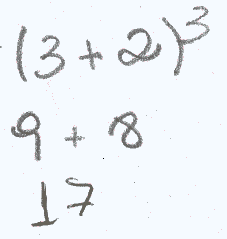 (3+2)³
9+8
17